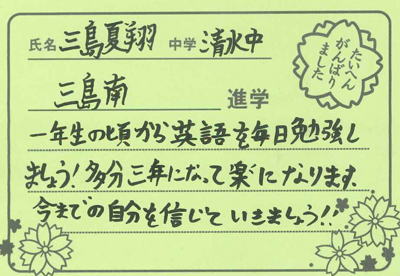 氏名 三島夏翔 中学 清水中
たいへん
がんばり
ました
三島南 進学
一年生の頃から英語を毎日勉強し
ましょう!多分三年になって楽になります。
今までの自分を信じていきましょう!!